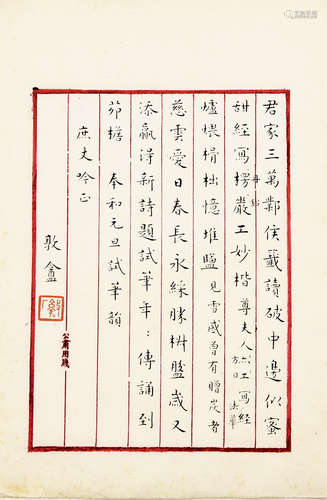 君家三萬鄴侯籤讀破中邊似蜜
甜經寫楞嚴工妙楷 尊夫人工寫經
爐煨榾柮憶堆鹽 見雪感曾有贈炭者
慈雲愛日春長永綵勝椒盤歲又
添贏得新詩題試筆年：傳誦到
茆檐 奉和元旦試筆韻
庶丈吟正
敦盦